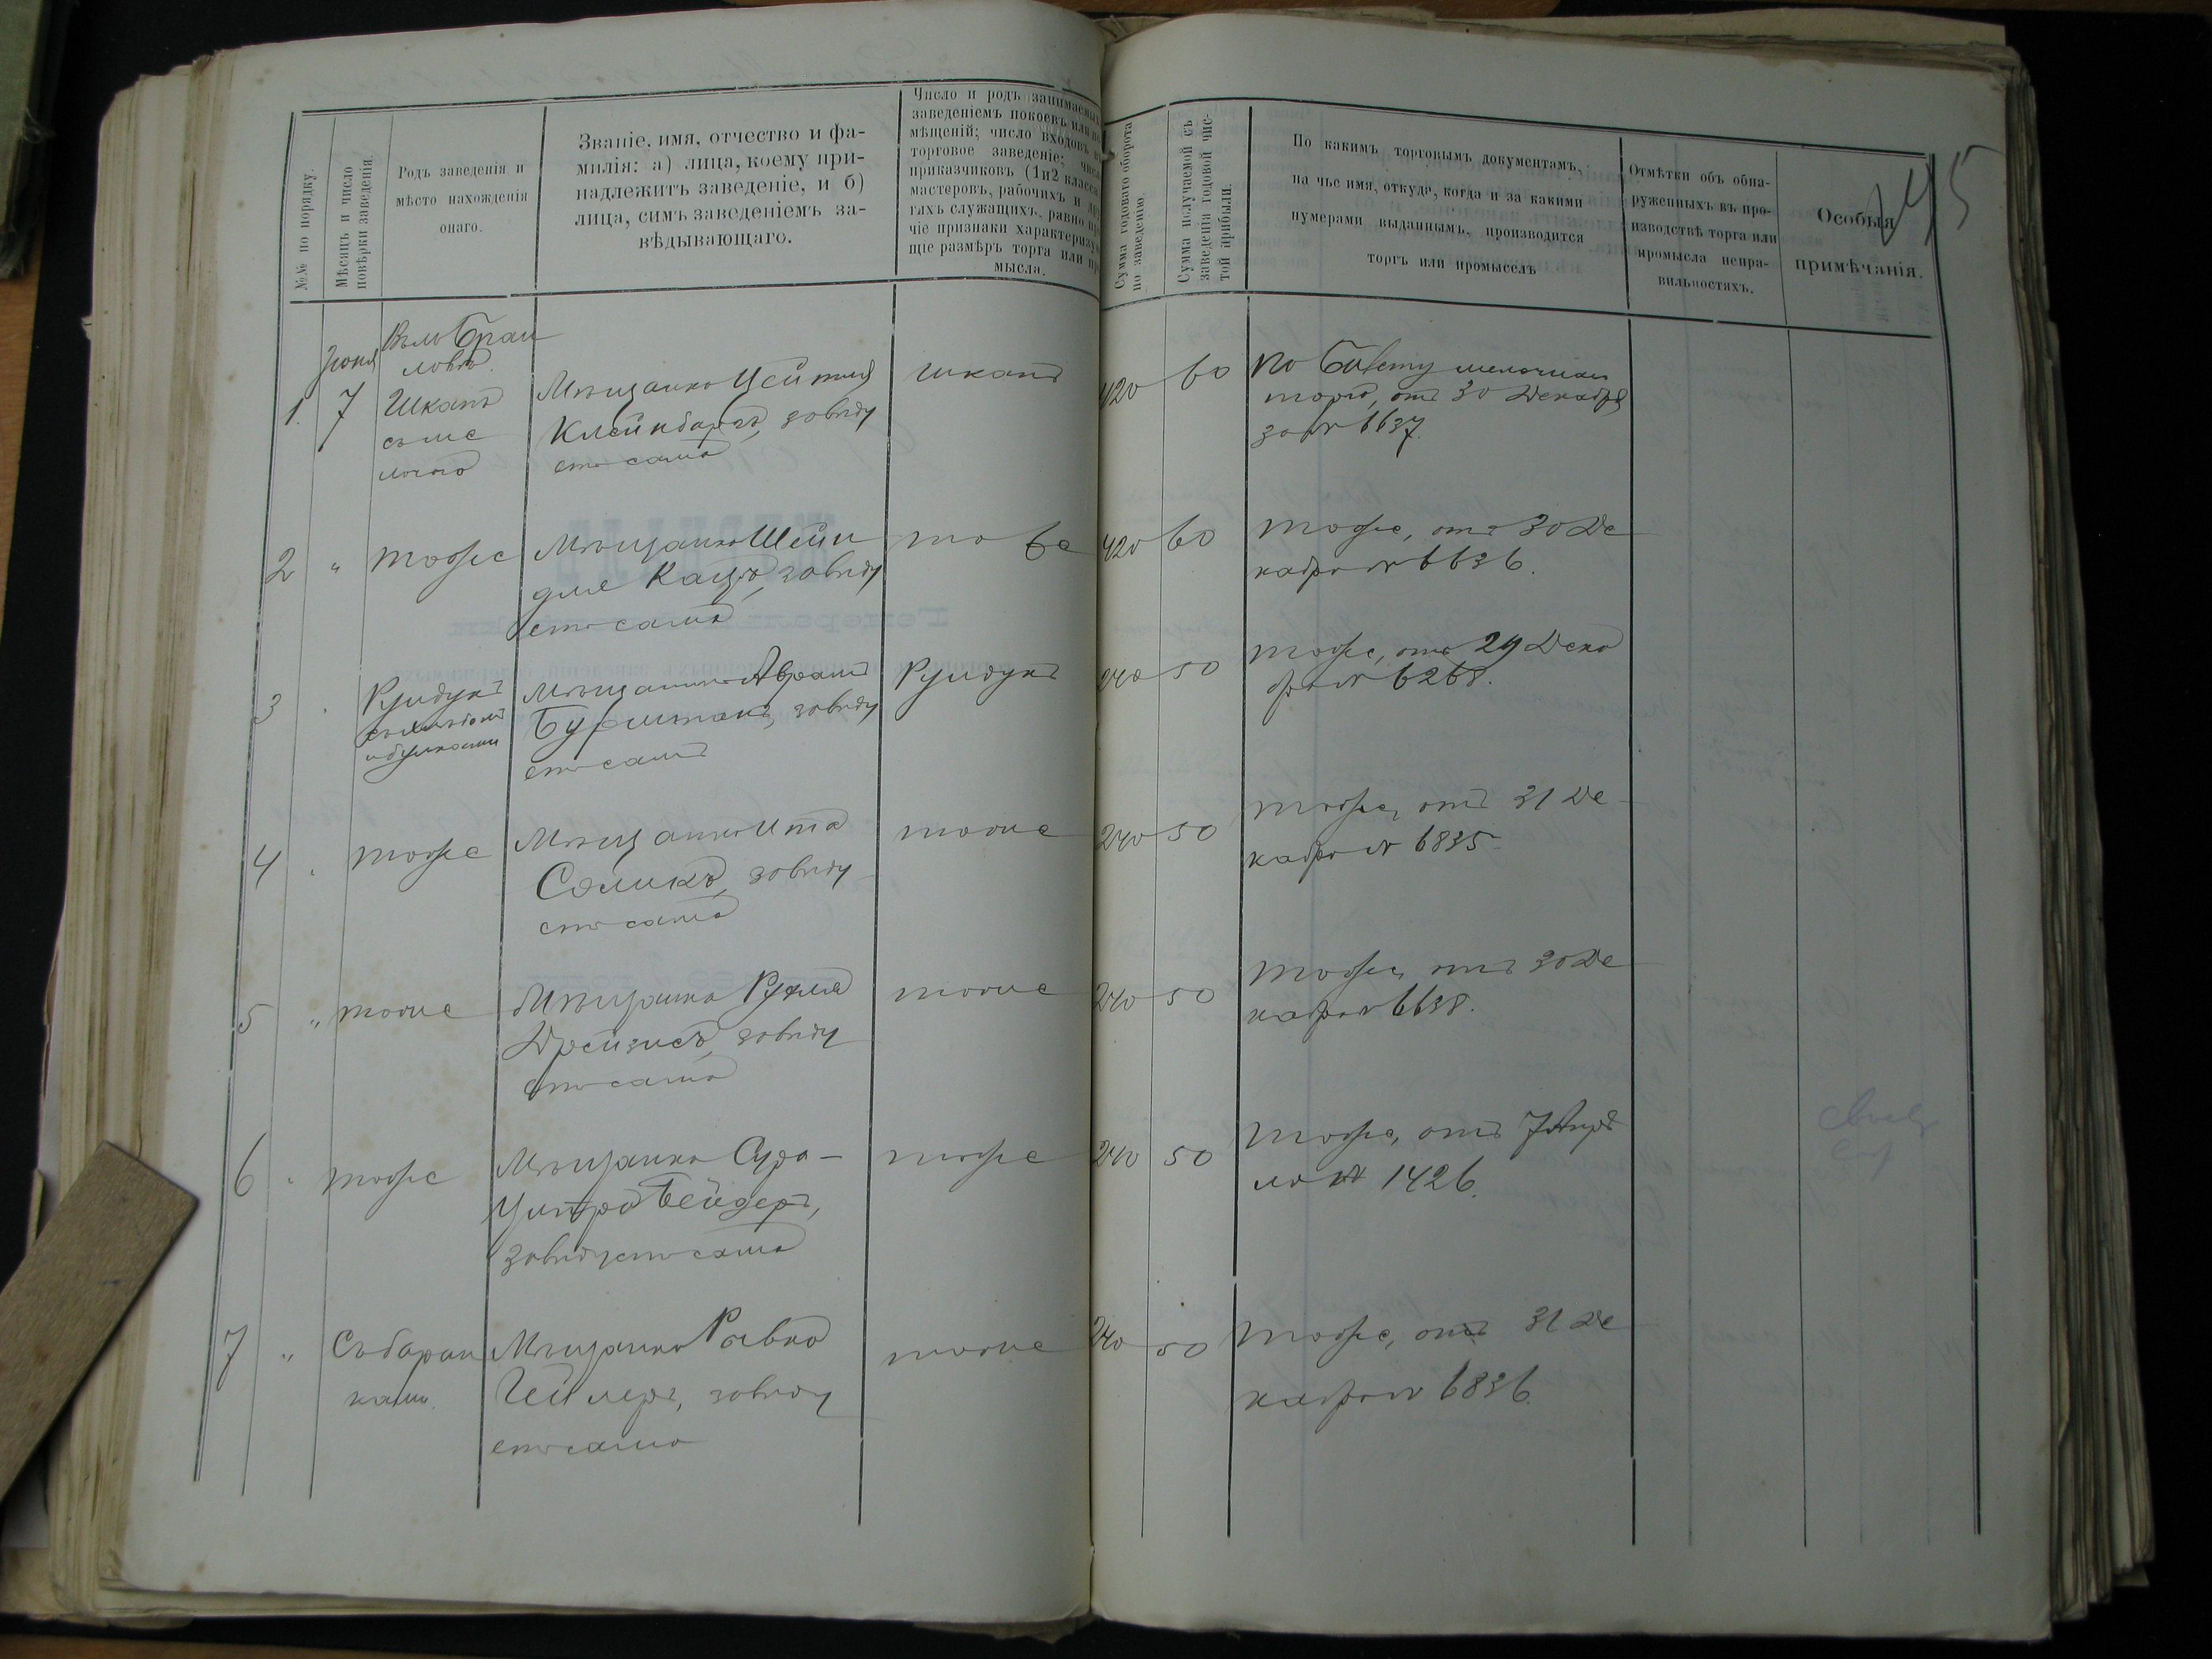 №№ по порядку.
Мѣсяцъ и число
повѣрки заведенія.
Родъ заведенія и
мѣсто нахожденія
онаго.
Званіе, имя, отчество и фа-
милія: а) лица, коему при-
надлежитъ заведеніе, и б)
лица, симъ заведеніемъ за-
вѣдывающаго.
Число и родъ занимаемыхъ
заведеніемъ покоевъ или по
мѣщеній; число входовъ въ
торговое заведеніе; число
приказчиковъ (1 и 2 класса
мастеровъ, рабочихъ и дру
гихъ служащихъ, равно про
чіе признаки характеризую
щіе размѣръ торга или про
мысла.
Сумма годоваго оборота
по заведенію.
Сумма получаемой съ
заведенія годовой чис-
той прибыли.
По какимъ торговымъ документамъ,
на чье имя, откуда, когда и за какими
нумерами выданнымъ, производится
торгъ или промыселъ
Отмѣтки объ обна-
руженныхъ въ про-
изводствѣ торга или
промысла непра-
вильностяхъ.
Особыя
примѣчанія.
Іюня
Браи
ловѣ
1. 7 Шкапъ
Мѣщанка Цейтля
Клейнбартъ, завѣду
етъ сама
шкапъ
420 60
По билету мелочнаго
торга, отъ 30 Декабря
за № 6637.
2 " тоже
Мѣщанка Шейн
для Кацъ, завѣду
етъ сама
тоже
420 60
тоже, отъ 30 Де
кабря № 6636.
3 " Рундукъ
съ хлѣбомъ
и булками
Абрамъ
Бурштанъ, завѣду
етъ самъ
Рундукъ
240 50
тоже, отъ 29 Дека
бря № 6268.
4 " тоже
Мѣщанка Ита
Соликъ, завѣду
етъ сама
тоже
240 50
тоже, отъ 31 Де
кабря № 6835
5 " тоже
Мѣщанка Рухля
Дрейзисъ, завѣду
етъ сама
тоже
240 50
тоже, отъ 30 Де
кабря № 6638.
6 " тоже
Мѣщанка Сура-
Бейдеръ,
завѣдуетъ сама
тоже
240 50
тоже, отъ 7 Апрѣ
ля № 1426.
7 " Съ баран
ками.
Мѣщанка Ривка
Геллеръ, завѣду
етъ сама
тоже
240 50
тоже, отъ 31 Де
кабря № 6836.